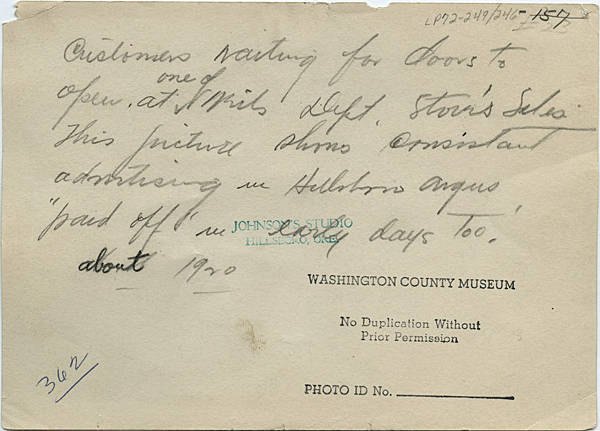 LP72-249/246-157
Customers waiting for doors to
one of
open. at Dept. Store's Sales.
This picture shows consistant
advertising in Hillsboro Argus
"paid off" in early days too.
about 1920
JOHNSON'S STUDIO
HILLSBORO, ORE.
WASHINGTON COUNTY MUSEUM
No Duplication Without
Prior Permission
PHOTO ID No.
362